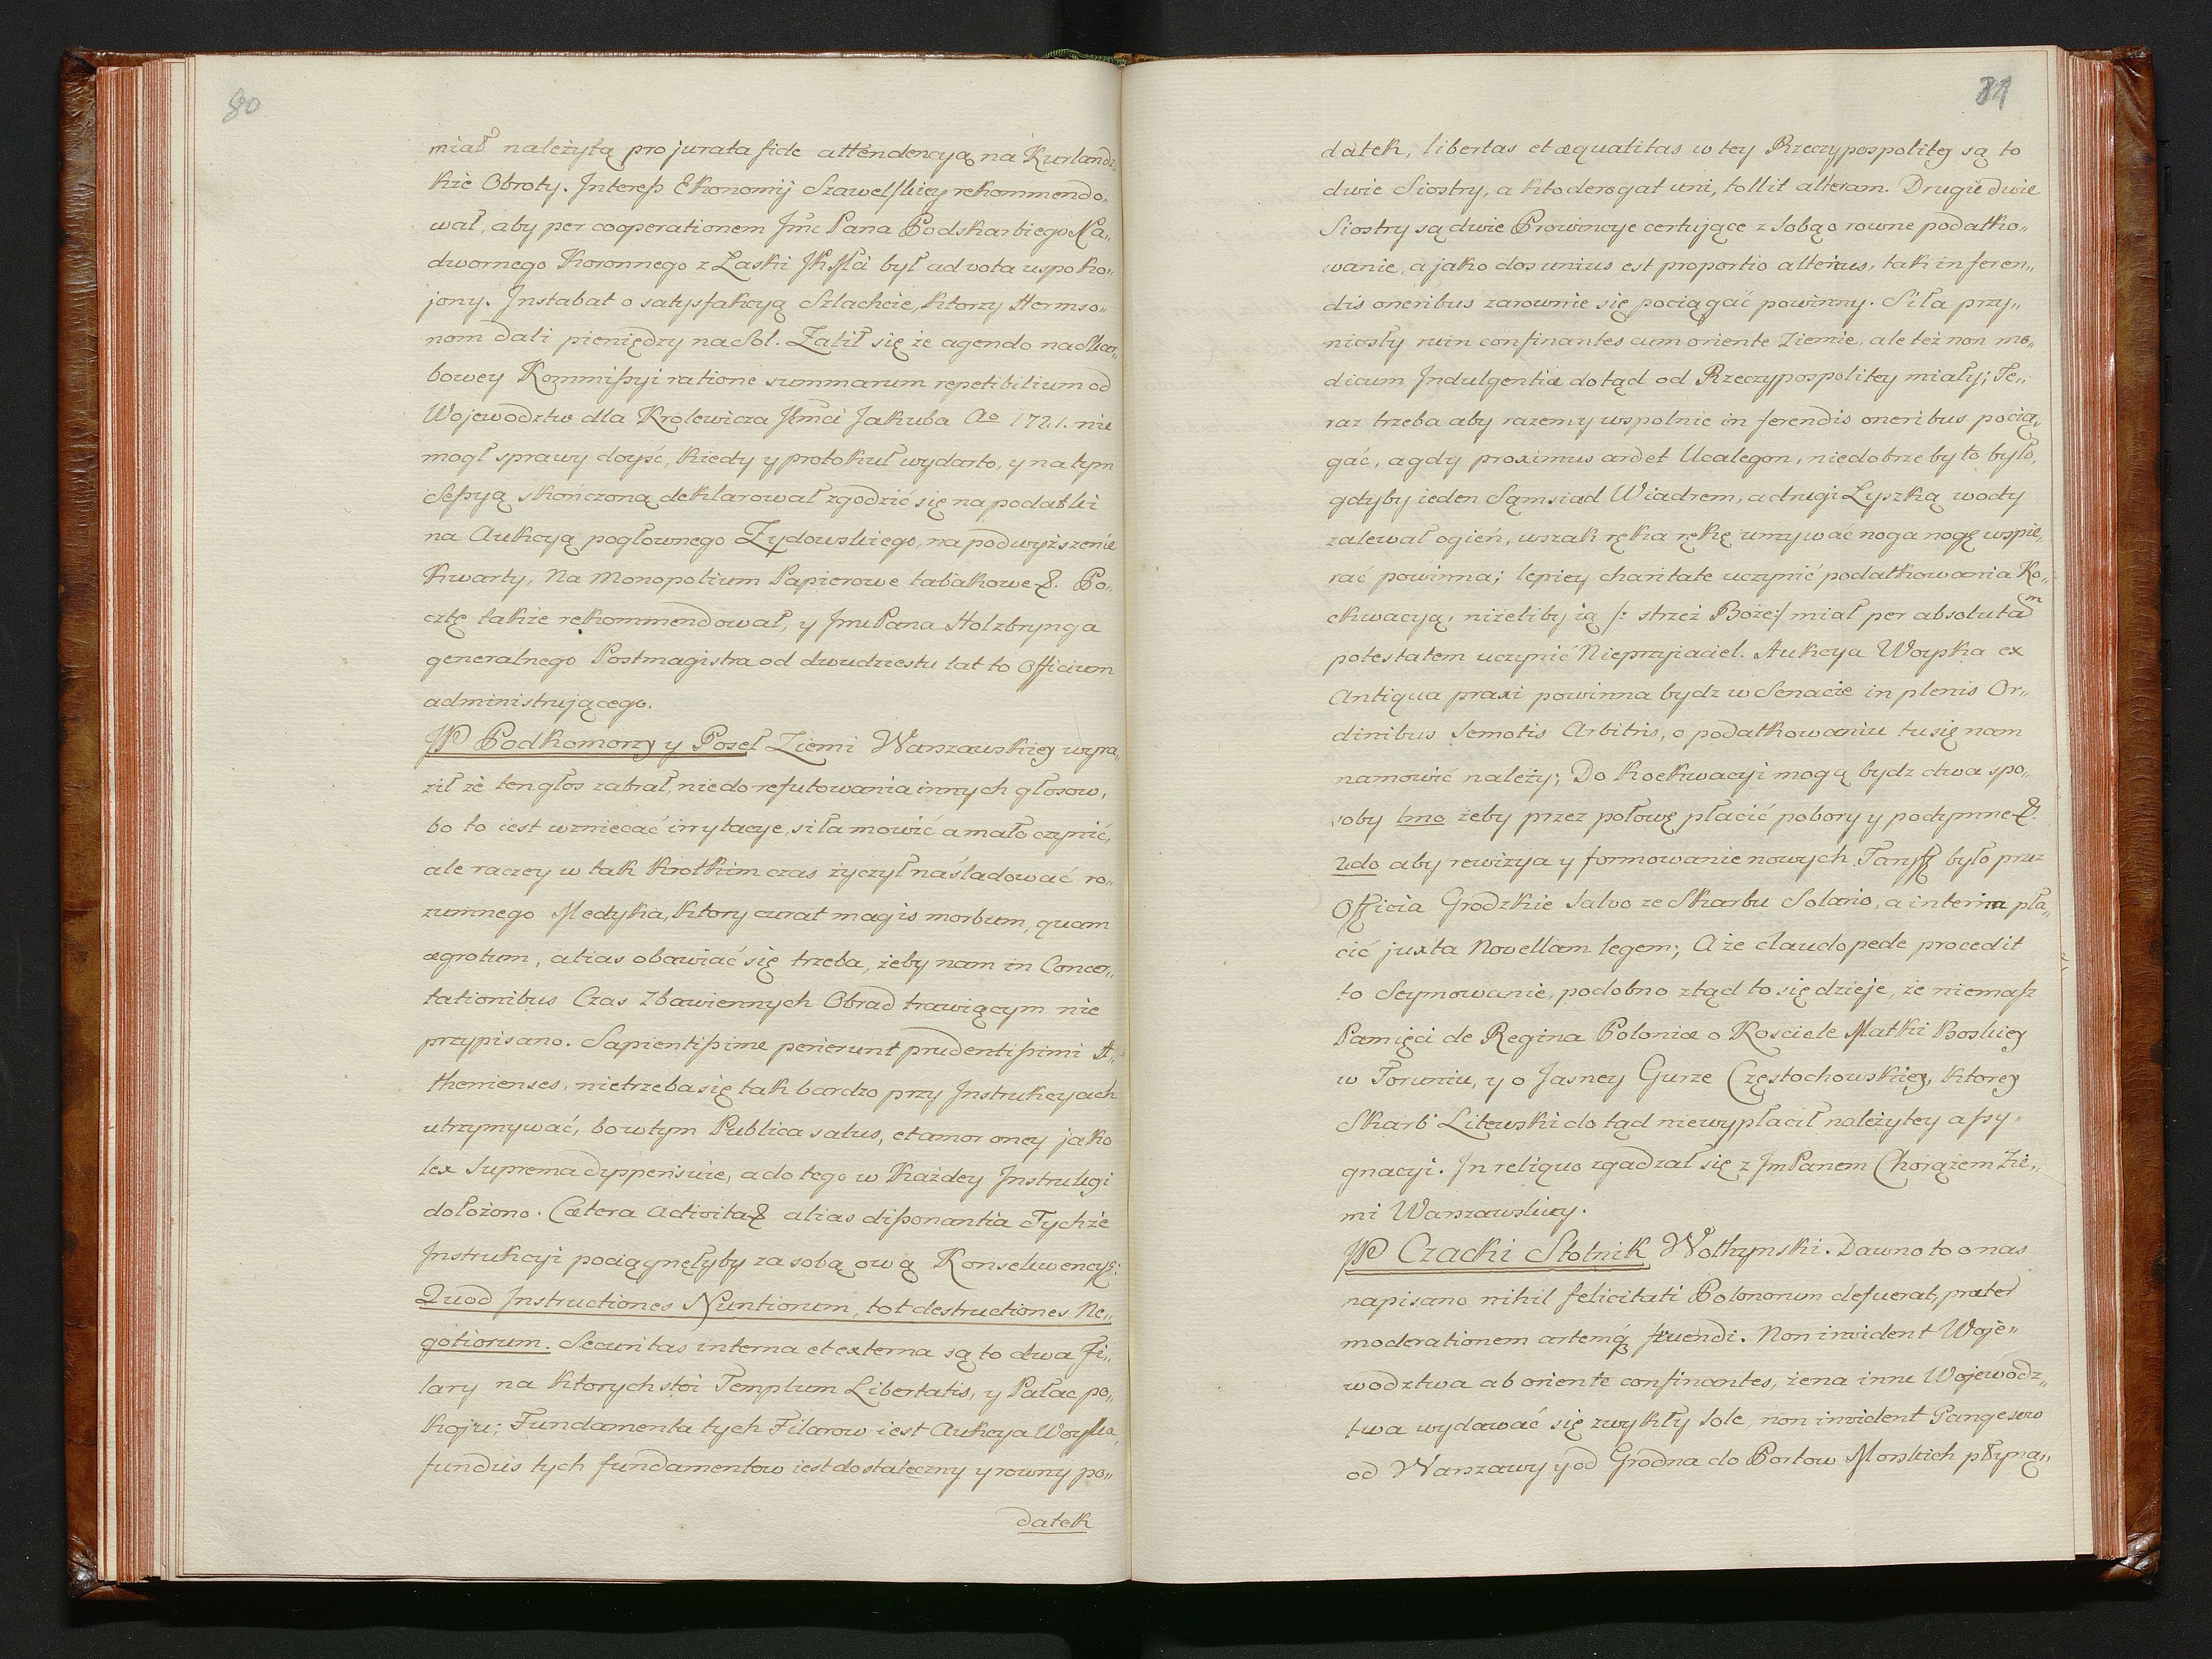 80
miał należytą pro jurata fide attendencyą na Kurlandz„
kie Obroty. Interess Ekonomij Szawelskiey rekommendo„
wał, aby per cooperationem Jmc Pana Podskarbiego Na„
dwornego Koronnego z Łaski JKMci był ad vota uspoko„
jony. Instabat o satysfakcyą Szlachcie, ktorzy Hermso„
nom dali pieniędzy na Sol. Żalił się że agendo na Skar„
bowey Kommissyi ratione summarum repetibilium od
Wojewodztw dla Krolewicza Jmci Jakuba Ao 1721. nie
mogł sprawy doyść, kiedy y protokuł wydarto, y na tym
Sessyą skończoną deklarował zgodzić się na podatki
na Aukcyą pogłownego Zydowskiego, na podwyższenie
Kwarty, Na Monopolium Papierowe tabakowe &. Po„
cztę także rekommendował, y Jmc Pana Holzbrynga
generalnego Postmagistra od dwudziestu lat to Officium
administrującego.
JP Podkomorzy y Poseł Ziemi Warszawskiey wyra„
ził że ten głos zabrał, nie do refutowania innych głosow,
bo to iest wzniecać irrytacye, siła mowić a mało czynić,
ale raczey w tak krotkim czas życzył naśladować ro„
zumnego Medyka, ktory curat magis morbum, quam
ægrotum, alias obawiać się trzeba, żeby nam in Concer„
tationibus Czas Zbawiennych Obrad trawiącym nie
przypisano. Sapientissime perierunt prudentissimi A„
thenienses, nie trzeba się tak bardzo przy Instrukcyach
utrzymywać, bo w tym Publica salus, et amor oney jako
lex Suprema dyspensuie, a do tego w każdey Instrukcyi
dołożono. Cætera Activitati & alias dissonantia Tychże
Instrukcyi pociągnęłyby za sobą ową Konsekwencyę:
Quod Instructiones Nuntiorum, tot destructiones Ne„
gotiorum. Securitas interna et externa są to dwa Fi„
lary na ktorych stoi Templum Libertatis, y Pałac po„
koju; Fundamenta tych Filarow iest Aukcya Woyska,
fundus tych fundamentow iest dostateczny y rowny po„
datek
81
datek, libertas et æqualitas w tey Rzeczypospolitey są to
dwie Siostry, a kto derogat uni, tollit alteram. Drugie dwie
Siostry są dwie Prowincye certujące z sobą o rowne podatko„
wanie, a jako dos unius est proportio alterius, tak in feren„
dis oneribus zarownie się pociągać powinny. Siła przy„
niosły ruin confinantes cum oriente Ziemie, ale też non mo„
dicum Indulgentiæ dotąd od Rzeczypospolitey miały; Te„
raz trzeba aby razem y wspolnie in ferendis oneribus pocią„
gać, a gdy proximus ardet Ucalegon, niedobrze by to było,
gdyby ieden Sąmsiad Wiadrem, a drugi Łyszką wody
zalewał ogień, wszak ręka rękę umywać noga nogę wspie„
rać powinna; lepiey charitate uczynić podatkowania Ko„
ekwacyą, niżeliby ią /: strzeż Boże:/ miał per absolutam
potestatem uczynić Nieprzyiaciel. Aukcya Woyska ex
Antiqua praxi powinna bydz w Senacie in plenis Or„
dinibus Semotis Arbitris, o podatkowaniu tu się nam
namowić należy; Do koekwacyi mogą bydz dwa spo„
soby 1mo żeby przez połowę płacić pobory y podymne &.
2do aby rewizya y formowanie nowych Taryff było przez
Officia Grodzkie salvo ze Skarbu Solario, a interim pła„
cić juxta Novellam legem; A że claudo pede procedit
to Seymowanie, podobno ztąd to się dzieje, że niemasz
Pamięci de Regina Poloniæ o Kościele Matki Boskiey
w Toruniu, y o Jasney Gurze Częstochowskiey, ktorey
Skarb Litewski do tąd niewypłacił należytey assy„
gnacyi. In reliquo zgadzał się z Jm Panem Chorążem Zie„
mi Warszawskiey.
JP Czacki Stolnik Wołhynski. Dawno to o nas
napisano nihil felicitati Polonorum defuerat, præter
moderationem artemq3 fruendi. Non invident Woje„
wodztwa ab oriente confinantes, że na inne Wojewodz„
twa wydawać się zwykły sole, non invident Pange sero
od Warszawy y od Grodna do Portow Morskich płyną„